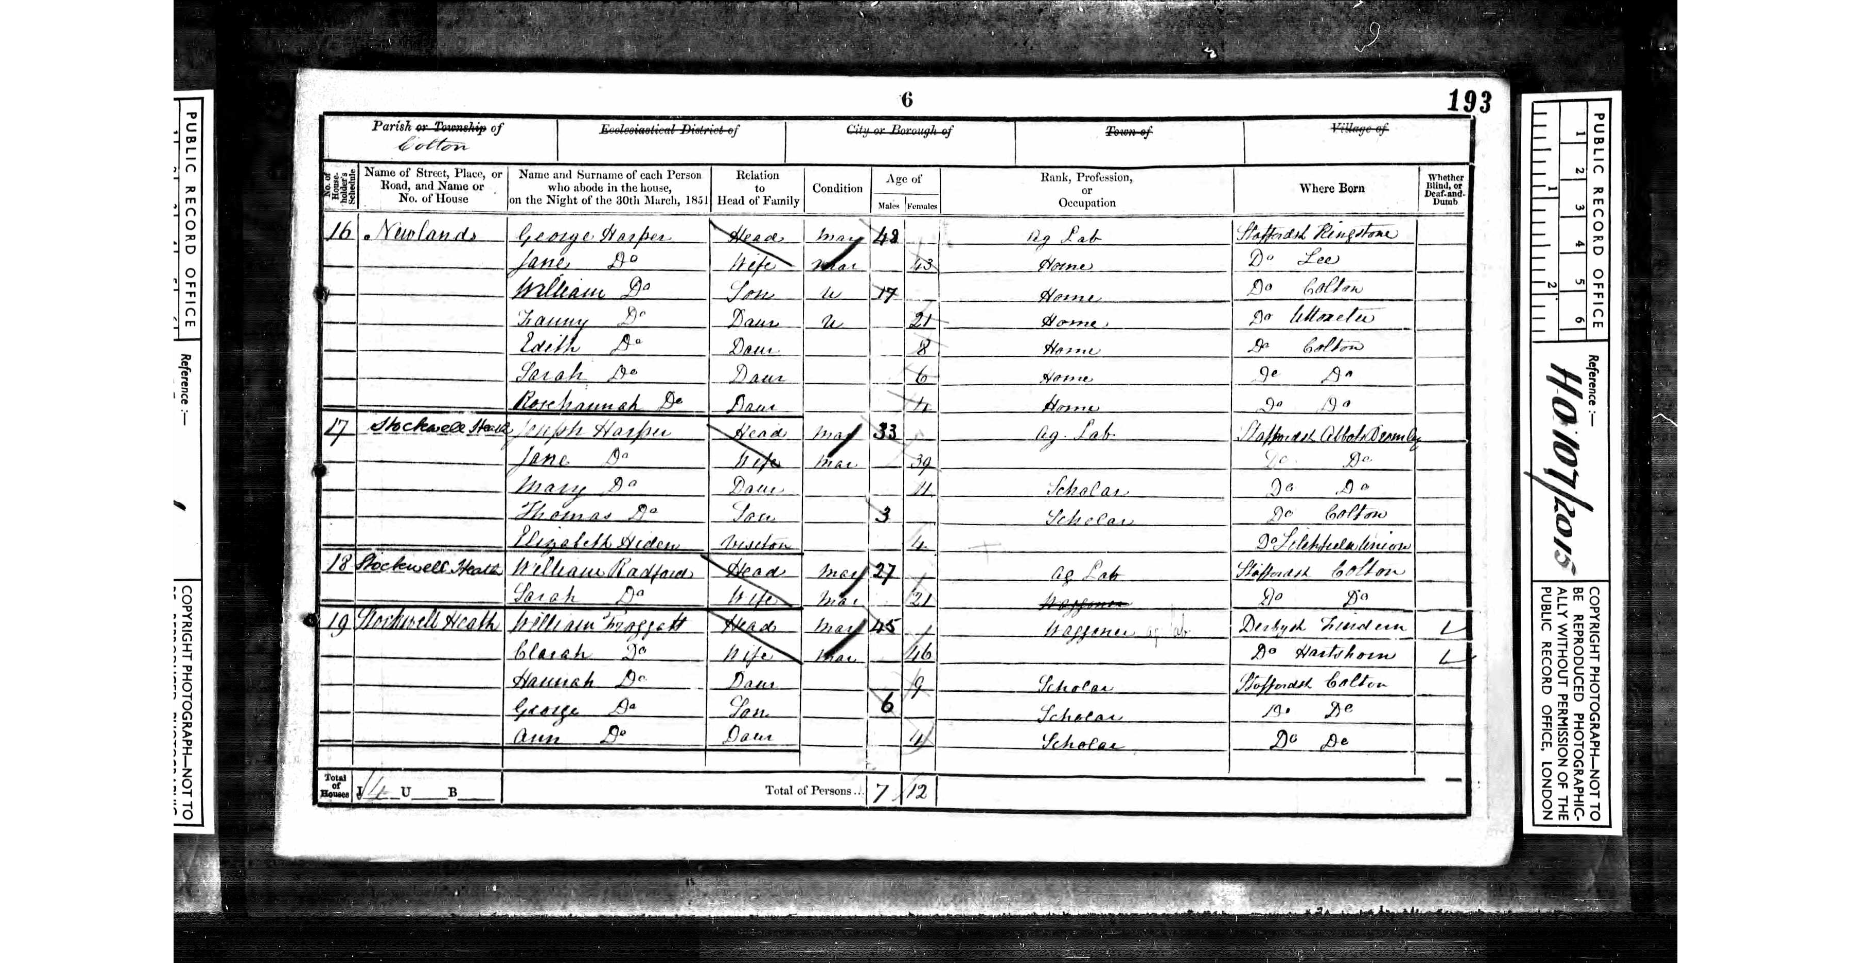 6
193
Parish or Township of
Colton
Ecclesiastical District of
City or Borough of
Town of
Village of
No. of House-holder's Schedule
Name of Street, Place, or Road, and Name or No. of House
Name and Surname of each Person who abode in the house, on the Night of the 30th March, 1851
Relation to Head of Family
Condition
Age of
Males Females
Rank, Profession, or Occupation
Where Born
Whether Blind, or Deaf-and-Dumb
16 Newlands George Harper Head Mar 48 Ag Lab Staffordsh Kingstone
Jane Do Wife Mar 43 Home Do Lee
William Do Son U 17 Home Do Colton
Fanny Do Daur U 21 Home Do Uttoxeter
Edith Do Daur 8 Home Do Colton
Sarah Do Daur 6 Home Do Do
Rosehannah Do Daur Home Do Do
17 Stockwell Heath Joseph Harper Head Mar 33 Ag. Lab Staffordsh Abbots Bromley
Jane Do Wife Mar 39 Do Do
Mary Do Daur 11 Scholar Do Do
Thomas Do Son 3 Scholar Do Colton
Elizabeth Hiden Visitor 4 Do Union
18 Stockwell Heath William Radford Head Mar 27 Ag Lab Staffordsh Colton
Sarah Do Wife Mar 21 Waggoner Do Do
19 Stockwell Heath William Head Mar 45 Waggoner ag lab Derbysh Findern
Clarah Do Wife Mar 46 Do Hartshorn
Hannah Do Daur 9 Scholar Staffordsh Colton
George Do Son 6 Scholar Do Do
Ann Do Daur 4 Scholar Do Do
Total of Houses I 4 U B Total of Persons... 7 12
PUBLIC RECORD OFFICE
Reference :—
COPYRIGHT PHOTOGRAPH—NOT TO
PUBLIC RECORD OFFICE
1 2 3 4 5 6
1 2
Reference :—
HO 107/2015
COPYRIGHT PHOTOGRAPH—NOT TO
BE REPRODUCED PHOTOGRAPHIC-
ALLY WITHOUT PERMISSION OF THE
PUBLIC RECORD OFFICE, LONDON